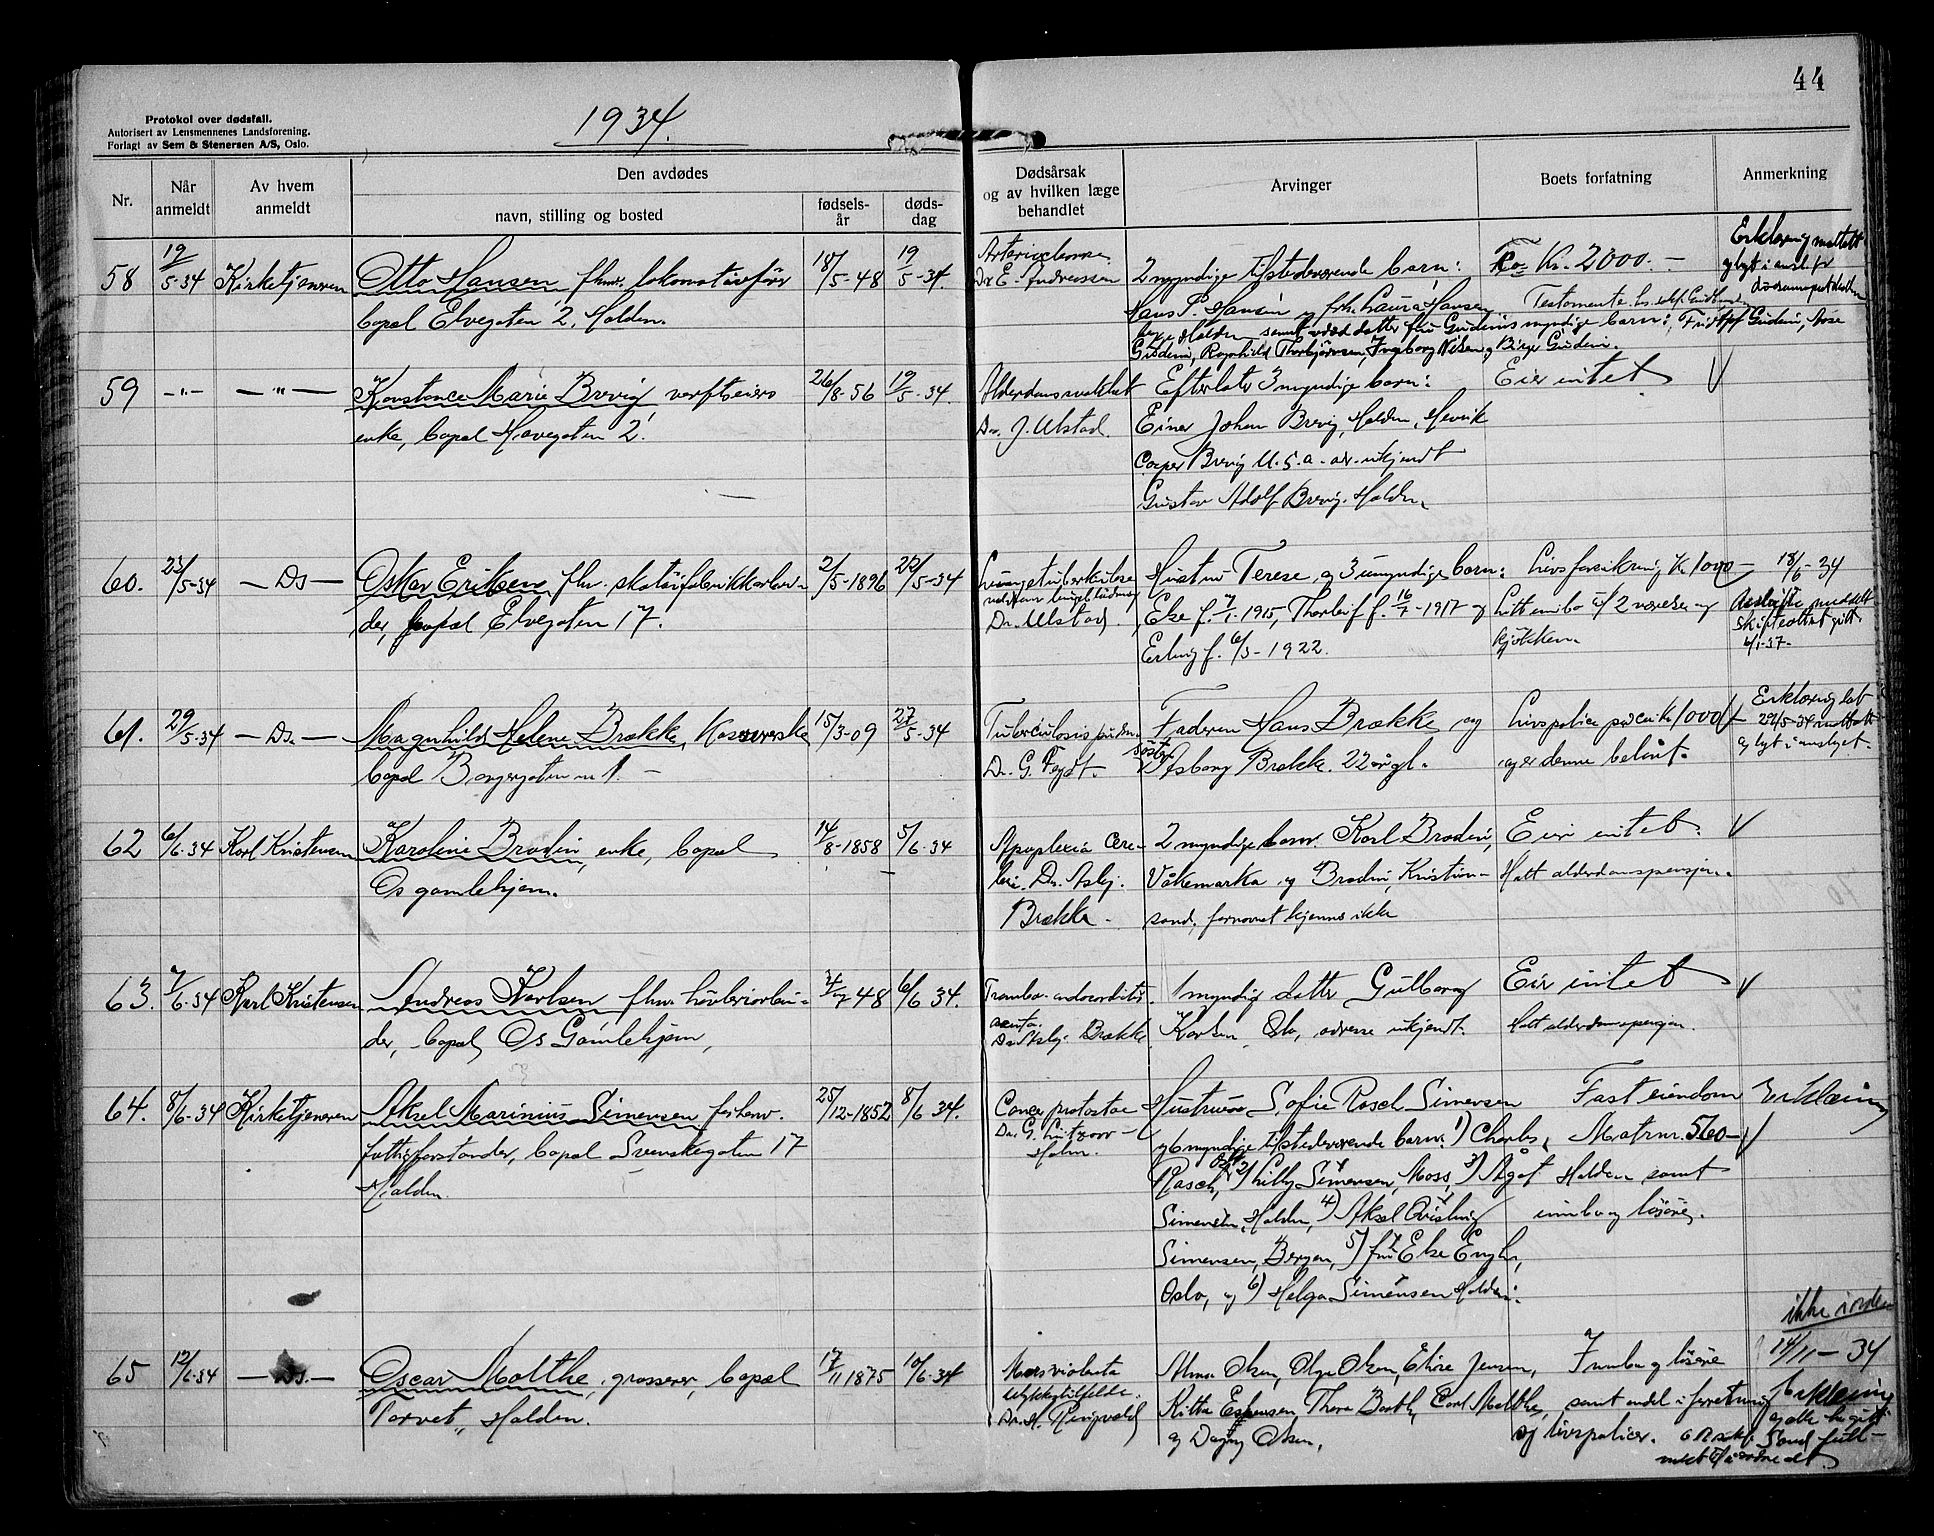 44
Protokol over dødsfall.
Autorisert av Lensmennenes Landsforening.
Forlagt av Sem & Stenersen A/S, Oslo.
1934.
Nr.
Når anmeldt
Av hvem anmeldt
Den avdødes
navn, stilling og bosted
fødsels-år
døds-dag
Dødsårsak og av hvilken læge behandlet
Arvinger
Boets forfatning
Anmerkning
58 19/5-34 Kirketjeneren Otto Hansen fhv. lokomotivfører 18/5-48 19/5-34.
bopæl Elvegaten 2, Halden.
Dr. E. Andreassen
2 myndige tilstedeværende barn:
Hans P. Hansen og frk. Laura Hansen
Kr. 2000.-
Testamente
Erklæring mottatt
Gudeni, Ragnhild Thorbjørnsen, Ingeborg Nilsen og Birger Gudeni.
59 -"- -"- Konstance Marie Brevig verftseiers 26/8-56 19/5-34.
enke, bopæl Havegaten 2.
Alderdomssvakhet
Dr. J. Ulstad.
Efterlater 3 myndige barn:
Einar Johan Brevig, Halden, Henrik
Casper Brevig U.S.a. adr. ukjendt
Gustav Adolf Brevig, Halden.
Eier intet
60. 23/5-34 -Ds- Oskar Eriksen fhv. skotøifabrikkarbei-
der, bopæl Elvegaten 17.
2/5-1896 22/5-34
Lungetuberkulose
Dr. Ulstad.
Hustru Terese, og 3 umyndige barn:
Else f. 7/1-1915, Thorleif f. 16/7-1917 og
Erling f. 6/3-1922.
Livsforsikring Kr. 1000-
Litt innbo i 2 værelser og
kjøkken.
18/6-34
skifteattest gitt.
6/1-37.
61. 29/5-34 -Ds.- Magnhild Helene Brække, Kassererske 15/3-09 27/5-34
bopæl Borgergaten nr 1.-
Tuberculosis pulm.
Dr. G. Feydt.
Faderen Hans Brække og
søster Asborg Brække. 22 år gl.
Livspolice på ca kr 1000
og er denne belånt.
Erklæring
29/5-34 mottatt
62 6/6-34 Karl Kristensen Karoline Brodin, enke, bopæl 14/8-1858 5/6-34
Os gamlehjem.
Apoplexia Cere-
bri. Dr. Asbj.
Brække.
2 myndige barn. Karl Brodin,
Våkemarka og Brodin, Kristian-
sand, fornavnet kjennes ikke
Eier intet.
Hatt alderdomspensjon.
63. 7/6-34 Karl Kristensen Andreas Karlsen fhv. høvleriarbei-
der, bopæl Os Gamlehjem,
48 6/6 34.
Trombo-endocarditis
acuta.
Dr. Asbj. Brække
1 myndig datter Gulborg
Karlsen, Oslo, adresse ukjendt.
Eier intet
Hatt alderdomspensjon.
64. 8/6-34 Kirketjeneren Aksel Marinius Simensen forhenv.
fattigforstander, bopæl Svenskegaten 17
Halden.
25/12-1852 8/6 34.
Cancer protostae
Dr. G. Lützow-
Holm.
Hustruen Sofie Rasch Simensen
og 6 myndige tilstedeværende barn: 1) Charles
Rasch, Oslo 2) Lilly Simensen, Moss, 3) Ågot
Simensen, Halden, 4) Aksel Qvisling
Simensen, Bergen, 5) fru Else Engh,
Oslo, og 6) Helga Simensen Halden.
Fast eiendom
Matrnr. 560-
Halden samt
innbo og løsøre.
Erklæring
65 12/6-34 -Ds- Oscar Molthe, grosserer, bopæl
Torvet, Halden.
17/11 1875 10/6-34
Mors violenta
ulykkestilfelle.
Dr. H. Ringvold
Alma Olsen, Olga Olsen, Elise Jensen,
Kitta Espensen, Thora Barth, Carl Molthe,
og Dagny Olsen.
Innbo og løsøre
samt andel i forretning
og livspolicer.
ikke i orden
14/11-34
Erklæring